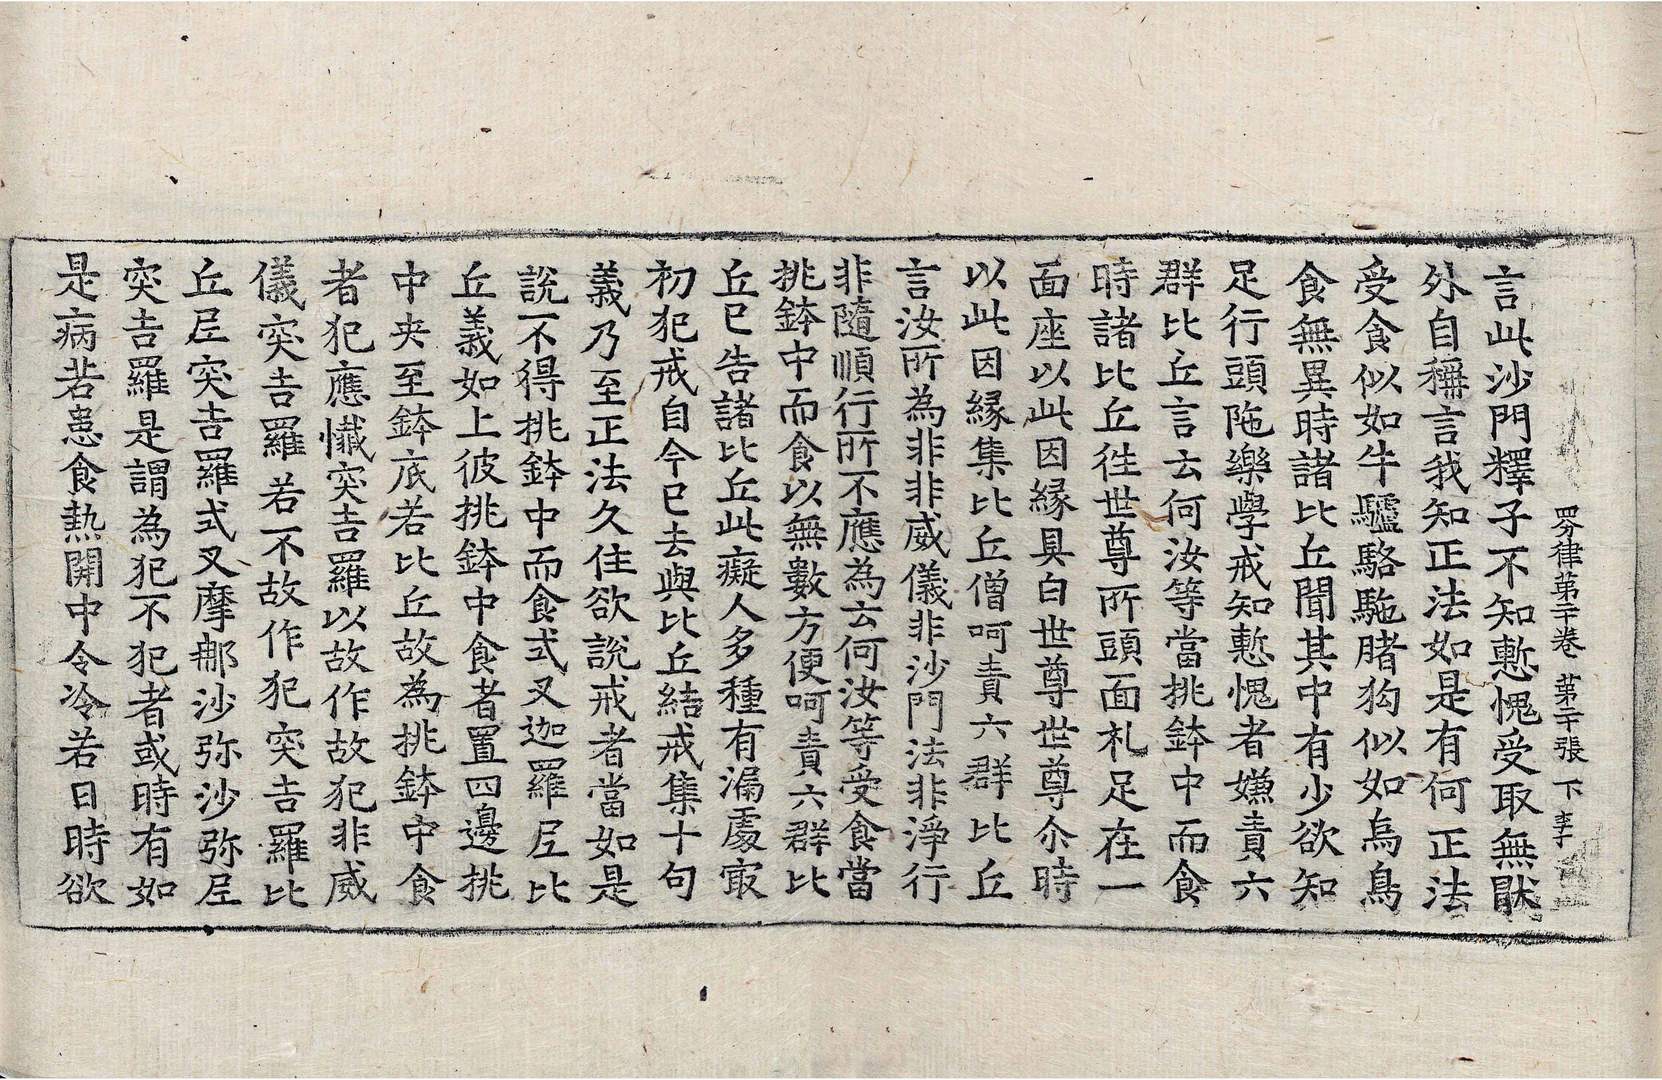 四分律第二十卷 第二十張 下 李
言此沙門釋子不知慙愧受取無猒
外自稱言我知正法如是有何正法
受食似如牛驢駱駞賭狗似如烏鳥
食無異時諸比丘聞其中有少欲知
足行頭陁樂學戒知慙愧者嫌責六
群比丘言云何汝等當挑鉢中而食
時諸比丘徃世尊所頭面礼足在一
面座以此因緣具白世尊世尊尒時
以此因緣集比丘僧呵責六群比丘
言汝所為非非威儀非沙門法非淨行
非隨順行所不應為云何汝等受食當
挑鉢中而食以無數方便呵責六群比
丘已告諸比丘此癡人多種有漏處㝡
初犯戒自今已去與比丘結戒集十句
義乃至正法久住欲說戒者當如是
說不得挑鉢中而食式叉迦羅尼比
丘義如上彼挑鉢中食者置四邊挑
中央至鉢底若比丘故為挑鉢中食
者犯應懺突吉羅以故作故犯非威
儀突吉羅若不故作犯突吉羅比
丘尼突吉羅式叉摩那沙弥沙弥尼
突吉羅是謂為犯不犯者或時有如
是病若患食熱開中令冷若日時欲